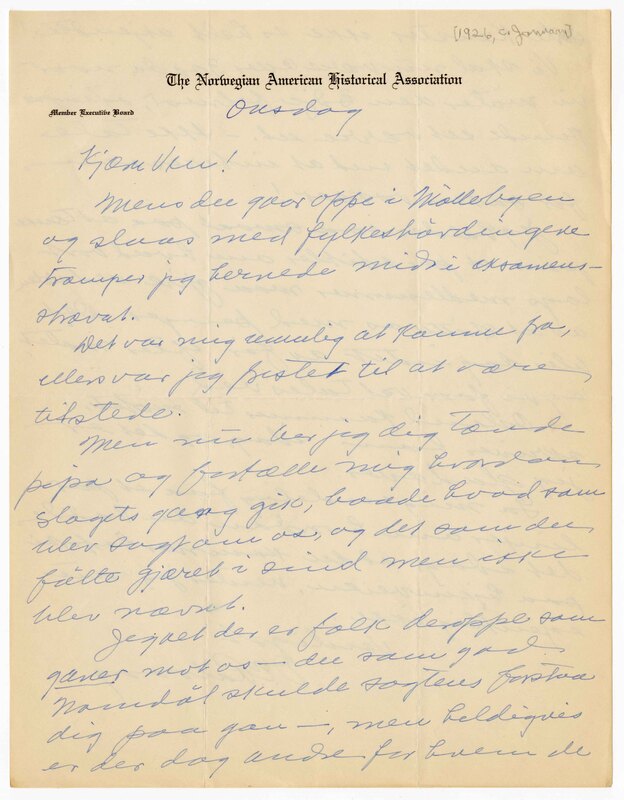 [1926, c. January]
The Norwegian American Historical Association
Member Executive Board
Onsdag
Kjære Ven!
Mens du gaar oppe i Møllebyen
og slaas med fylkeshövdingene
tramper jeg hernede midt i examens-
strævet.
Det var mig umulig at komme fra,
ellers var jeg fristet til at være
tilstede.
Men nu ber jeg dig tænde
pipa og fortælle mig hvordan
slagets gang gik, baade hvad som
blev sagt om os, og det som du
fölte gjæret i sind men ikke
blev nævnt.
Jeg vet der er folk deroppe som
ganer mot os — du som god
Namdöl skulde sagtens forstaa
dig paa gan —, men heldigvis
er der dog andre for hvem de